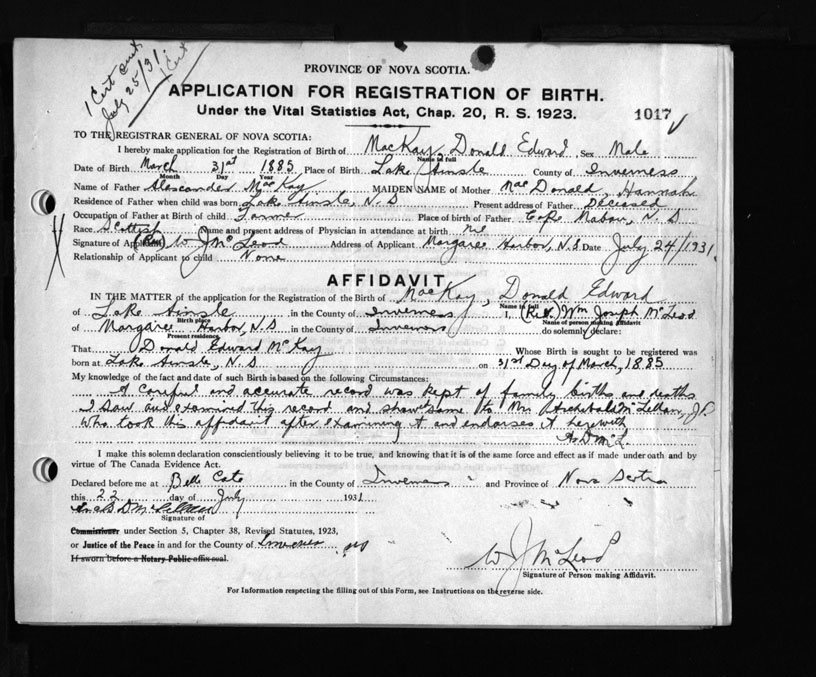 1 Cert out
July 25/31
1 Cert
PROVINCE OF NOVA SCOTIA.
APPLICATION FOR REGISTRATION OF BIRTH.
Under the Vital Statistics Act, Chap. 20, R. S. 1923.
1017
TO THE REGISTRAR GENERAL OF NOVA SCOTIA:
I hereby make application for the Registration of Birth of MacKay, Donald Edward Sex Male
Name in full
Date of Birth March 31st 1885 Place of Birth Lake Ainslie County of Inverness
Month Day Year
Name of Father Alexander McKay MAIDEN NAME of Mother MacDonald, Hannah
Residence of Father when child was born Lake Ainslie, N. S Present address of Father Deceased
Occupation of Father at Birth of child Farmer Place of birth of Father Cape Mabou, N. S
Race Scottish Name and present address of Physician in attendance at birth nil
Signature of Applicant (Rev) W J McLeod Address of Applicant Margaree Harbor, N.S Date July 24/1931.
Relationship of Applicant to child None
AFFIDAVIT
IN THE MATTER of the application for the Registration of the Birth of MacKay, Donald Edward
Name in full
of Lake Ainslie in the County of Inverness I, (Rev.) Wm Joseph McLeod
Birth place Name of person making affidavit
of Margaree Harbor, N.S in the County of Inverness do solemnly declare:
Present residence
That Donald Edward McKay Whose Birth is sought to be registered was
born at Lake Ainslie, N. S on 31st Day of March, 1885
My knowledge of the fact and date of such Birth is based on the following Circumstances:
A careful and accurate record was kept of family births and deaths
I saw and examined this record and show same to Mr Archibald McLellan, J.P.
who took this affidavit after examining it and endorses it herewith
A. D McL.
I make this solemn declaration conscientiously believing it to be true, and knowing that it is of the same force and effect as if made under oath and by
virtue of The Canada Evidence Act.
Declared before me at Belle Cote in the County of Inverness and Province of Nova Scotia
this 22 day of July 1931
D McLellan
Signature of
Commissioner under Section 5, Chapter 38, Revised Statutes, 1923,
or Justice of the Peace in and for the County of Inverness
If sworn before a Notary Public affix seal.
W J McLeod
Signature of Person making Affidavit.
For Information respecting the filling out of this Form, see Instructions on the reverse side.